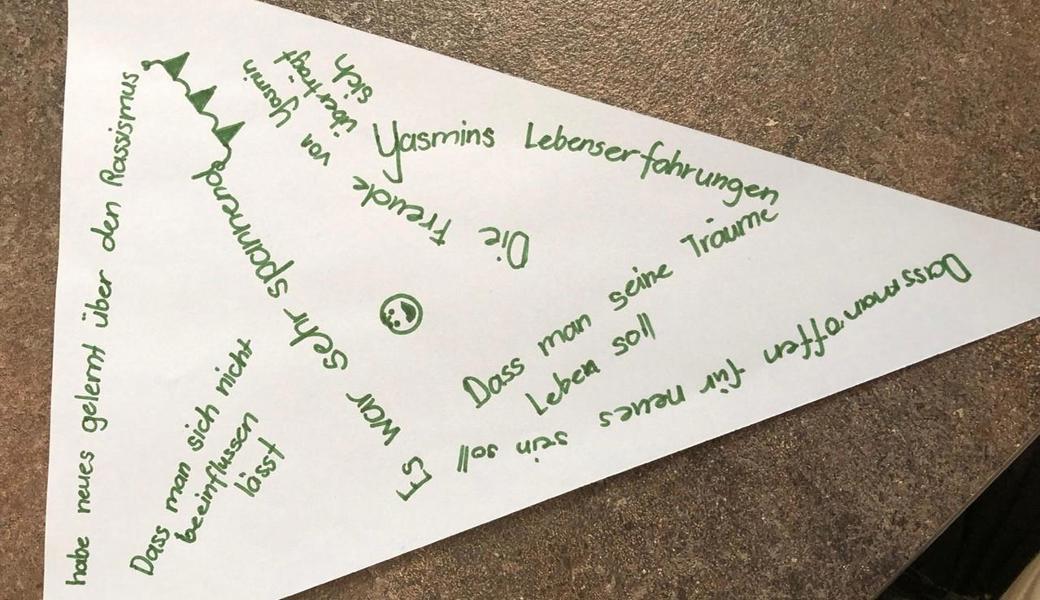 habe neues gelernt über den Rassismus
Dass man sich nicht
beeinflussen
lässt
Es war sehr spannend
Die Freude
von Yasmin
überträgt
sich
Yasmins Lebenserfahrungen
Dass man seine Träume
Leben soll
Dass man offen für neues sein soll